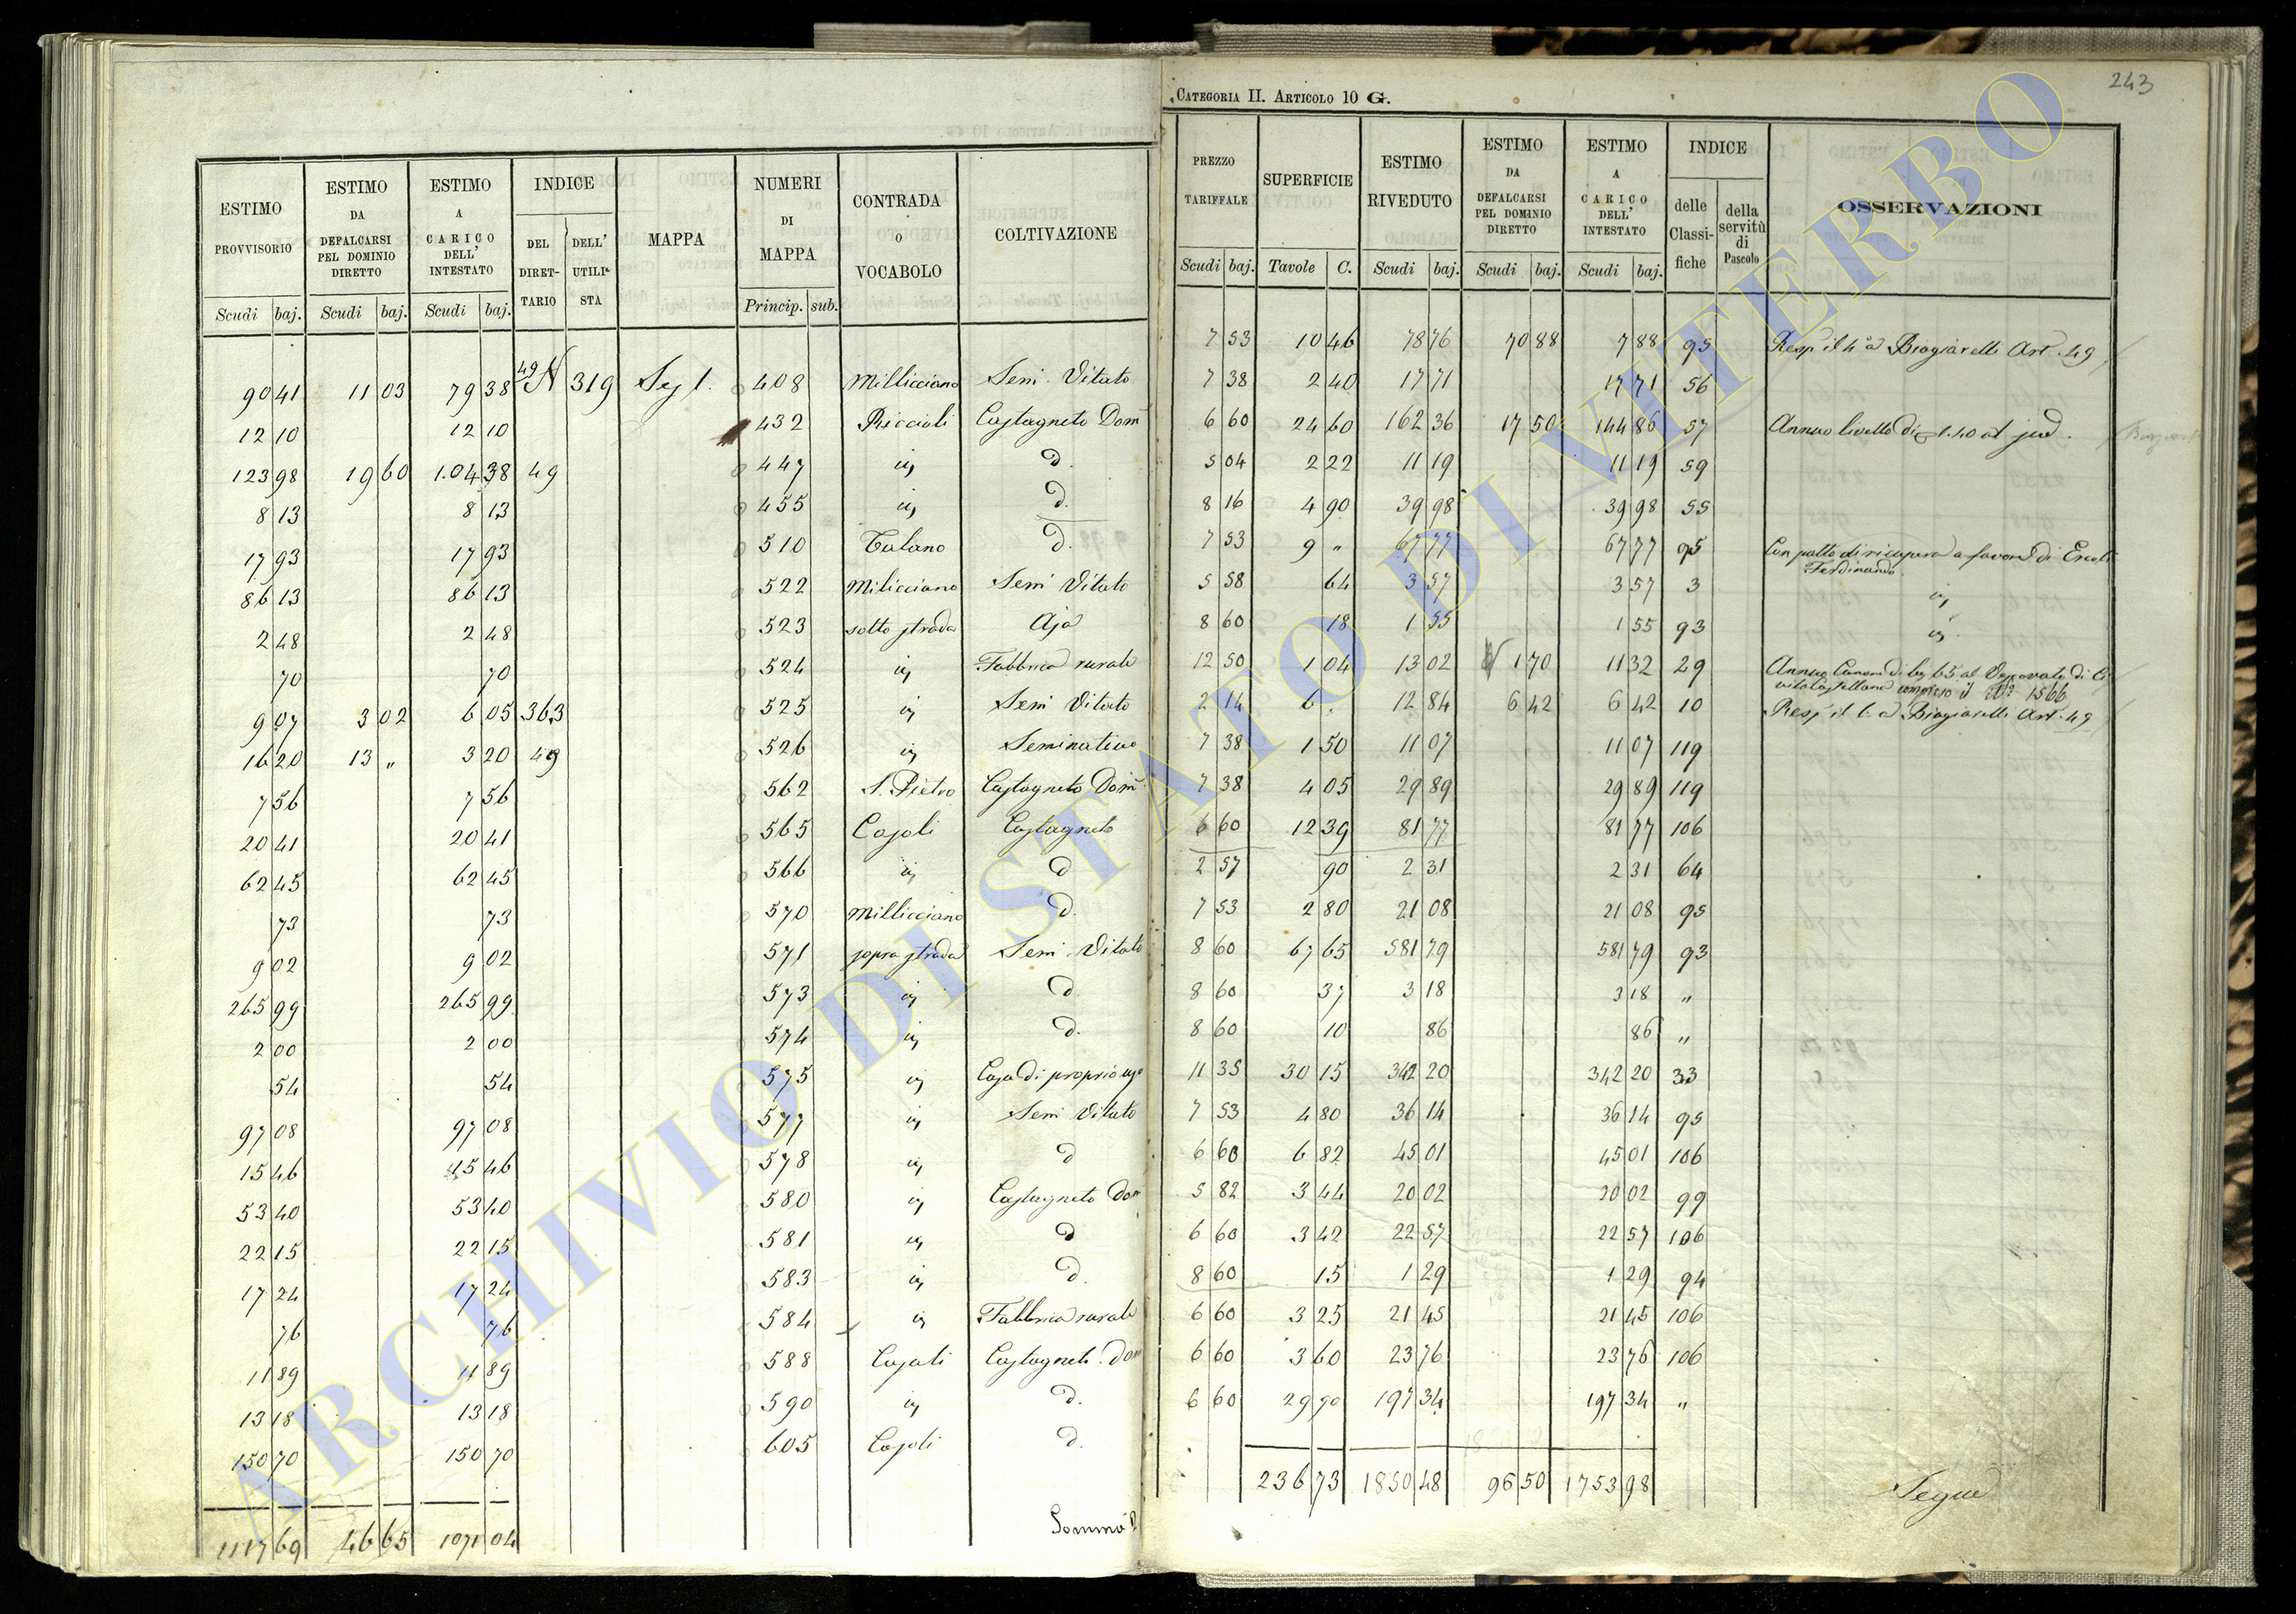 243
CATEGORIA II. ARTICOLO 10 G.
ESTIMO PROVVISORIO | ESTIMO DA DEFALCARSI PEL DOMINIO DIRETTO | ESTIMO A CARICO DELL' INTESTATO | INDICE DEL DIRETTARIO | DELL' UTILISTA | MAPPA | NUMERI DI MAPPA | CONTRADA O VOCABOLO | COLTIVAZIONE
PREZZO TARIFFALE | SUPERFICIE | ESTIMO RIVEDUTO | ESTIMO DA DEFALCARSI PEL DOMINIO DIRETTO | ESTIMO A CARICO DELL' INTESTATO | INDICE delle Classifiche | della servitù di Pascolo | OSSERVAZIONI
Scudi baj. | Scudi baj. | Scudi baj. | Princip. sub.
Scudi baj. | Tavole C. | Scudi baj. | Scudi baj. | Scudi baj.
90 41 | 11 03 | 79 38 | 49 N | 319 | Sez 1. | 408 | Millicciano | Semi. Vitato | 7 53 | 10 46 | 78 76 | 70 88 | 7 88 | 95 | Biagiarelli Art. 49
12 10 | 12 10 | 432 | Riccioli | Castagneto Dom | 7 38 | 2 40 | 17 71 | 17 71 | 56
123 98 | 19 60 | 104 38 | 49 | 447 | id | d. | 6 60 | 24 60 | 162 36 | 17 50 | 144 86 | 57 | Annuo livello di 1.40 al
8 13 | 8 13 | 455 | id | d. | 5 04 | 2 22 | 11 19 | 11 19 | 59
17 93 | 17 93 | 510 | d. | 8 16 | 4 90 | 39 98 | 39 98 | 55
86 13 | 86 13 | 522 | Milicciano | Semi Vitato | 7 53 | 9 " | 67 77 | 67 77 | 95 | Con patto di ricupera a favore di Ercoli Ferdinando
2 48 | 2 48 | 523 | sotto strada | Aja | 5 58 | 64 | 3 57 | 3 57 | 3 | id
70 | 70 | 524 | id | Fabbrica rurale | 8 60 | 18 | 1 55 | 1 55 | 93 | id
9 07 | 3 02 | 6 05 | 363 | 525 | id | Semi Vitato | 12 50 | 1 04 | 13 02 | 1 70 | 11 32 | 29 | Annuo Canone di baj 65 al Vescovato di Civitacastellana compreso il N° 1566
16 20 | 13 " | 3 20 | 49 | 526 | id | Seminativo | 2 14 | 6 . | 12 84 | 6 42 | 6 42 | 10 | Biagiarelli Art. 49
7 56 | 7 56 | 562 | S. Pietro | Castagneto Dom | 7 38 | 1 50 | 11 07 | 11 07 | 119
20 41 | 20 41 | 565 | Casali | Castagneto | 7 38 | 4 05 | 29 89 | 29 89 | 119
62 45 | 62 45 | 566 | id | d | 6 60 | 12 39 | 81 77 | 81 77 | 106
73 | 73 | 570 | Millicciano | d. | 2 57 | 90 | 2 31 | 2 31 | 64
9 02 | 9 02 | 571 | sopra strada | Semi. Vitato | 7 53 | 2 80 | 21 08 | 21 08 | 95
265 99 | 265 99 | 573 | id | d. | 8 60 | 67 65 | 581 79 | 581 79 | 93
2 00 | 2 00 | 574 | id | d. | 8 60 | 37 | 3 18 | 3 18 | "
54 | 54 | 575 | id | Casa di proprio uso | 8 60 | 10 | 86 | 86 | "
97 08 | 97 08 | 577 | id | Semi Vitato | 11 35 | 30 15 | 342 20 | 342 20 | 33
15 46 | 15 46 | 578 | id | d | 7 53 | 4 80 | 36 14 | 36 14 | 95
53 40 | 53 40 | 580 | id | Castagneto Dom | 6 60 | 6 82 | 45 01 | 45 01 | 106
22 15 | 22 15 | 581 | id | d | 5 82 | 3 44 | 20 02 | 20 02 | 99
17 24 | 17 24 | 583 | id | d. | 6 60 | 3 42 | 22 57 | 22 57 | 106
76 | 76 | 584 | id | Fabbrica rurale | 8 60 | 15 | 1 29 | 1 29 | 94
11 89 | 11 89 | 588 | Casali | Castagneto. Dom | 6 60 | 3 25 | 21 45 | 21 45 | 106
13 18 | 13 18 | 590 | id | d. | 6 60 | 3 60 | 23 76 | 23 76 | 106
150 70 | 150 70 | 605 | Casoli | d. | 6 60 | 29 90 | 197 34 | 197 34 | "
1117 69 | 46 65 | 1071 04 | Somma | 236 73 | 1850 48 | 96 50 | 1753 98 | Segue
ARCHIVIO DI STATO DI VITERBO